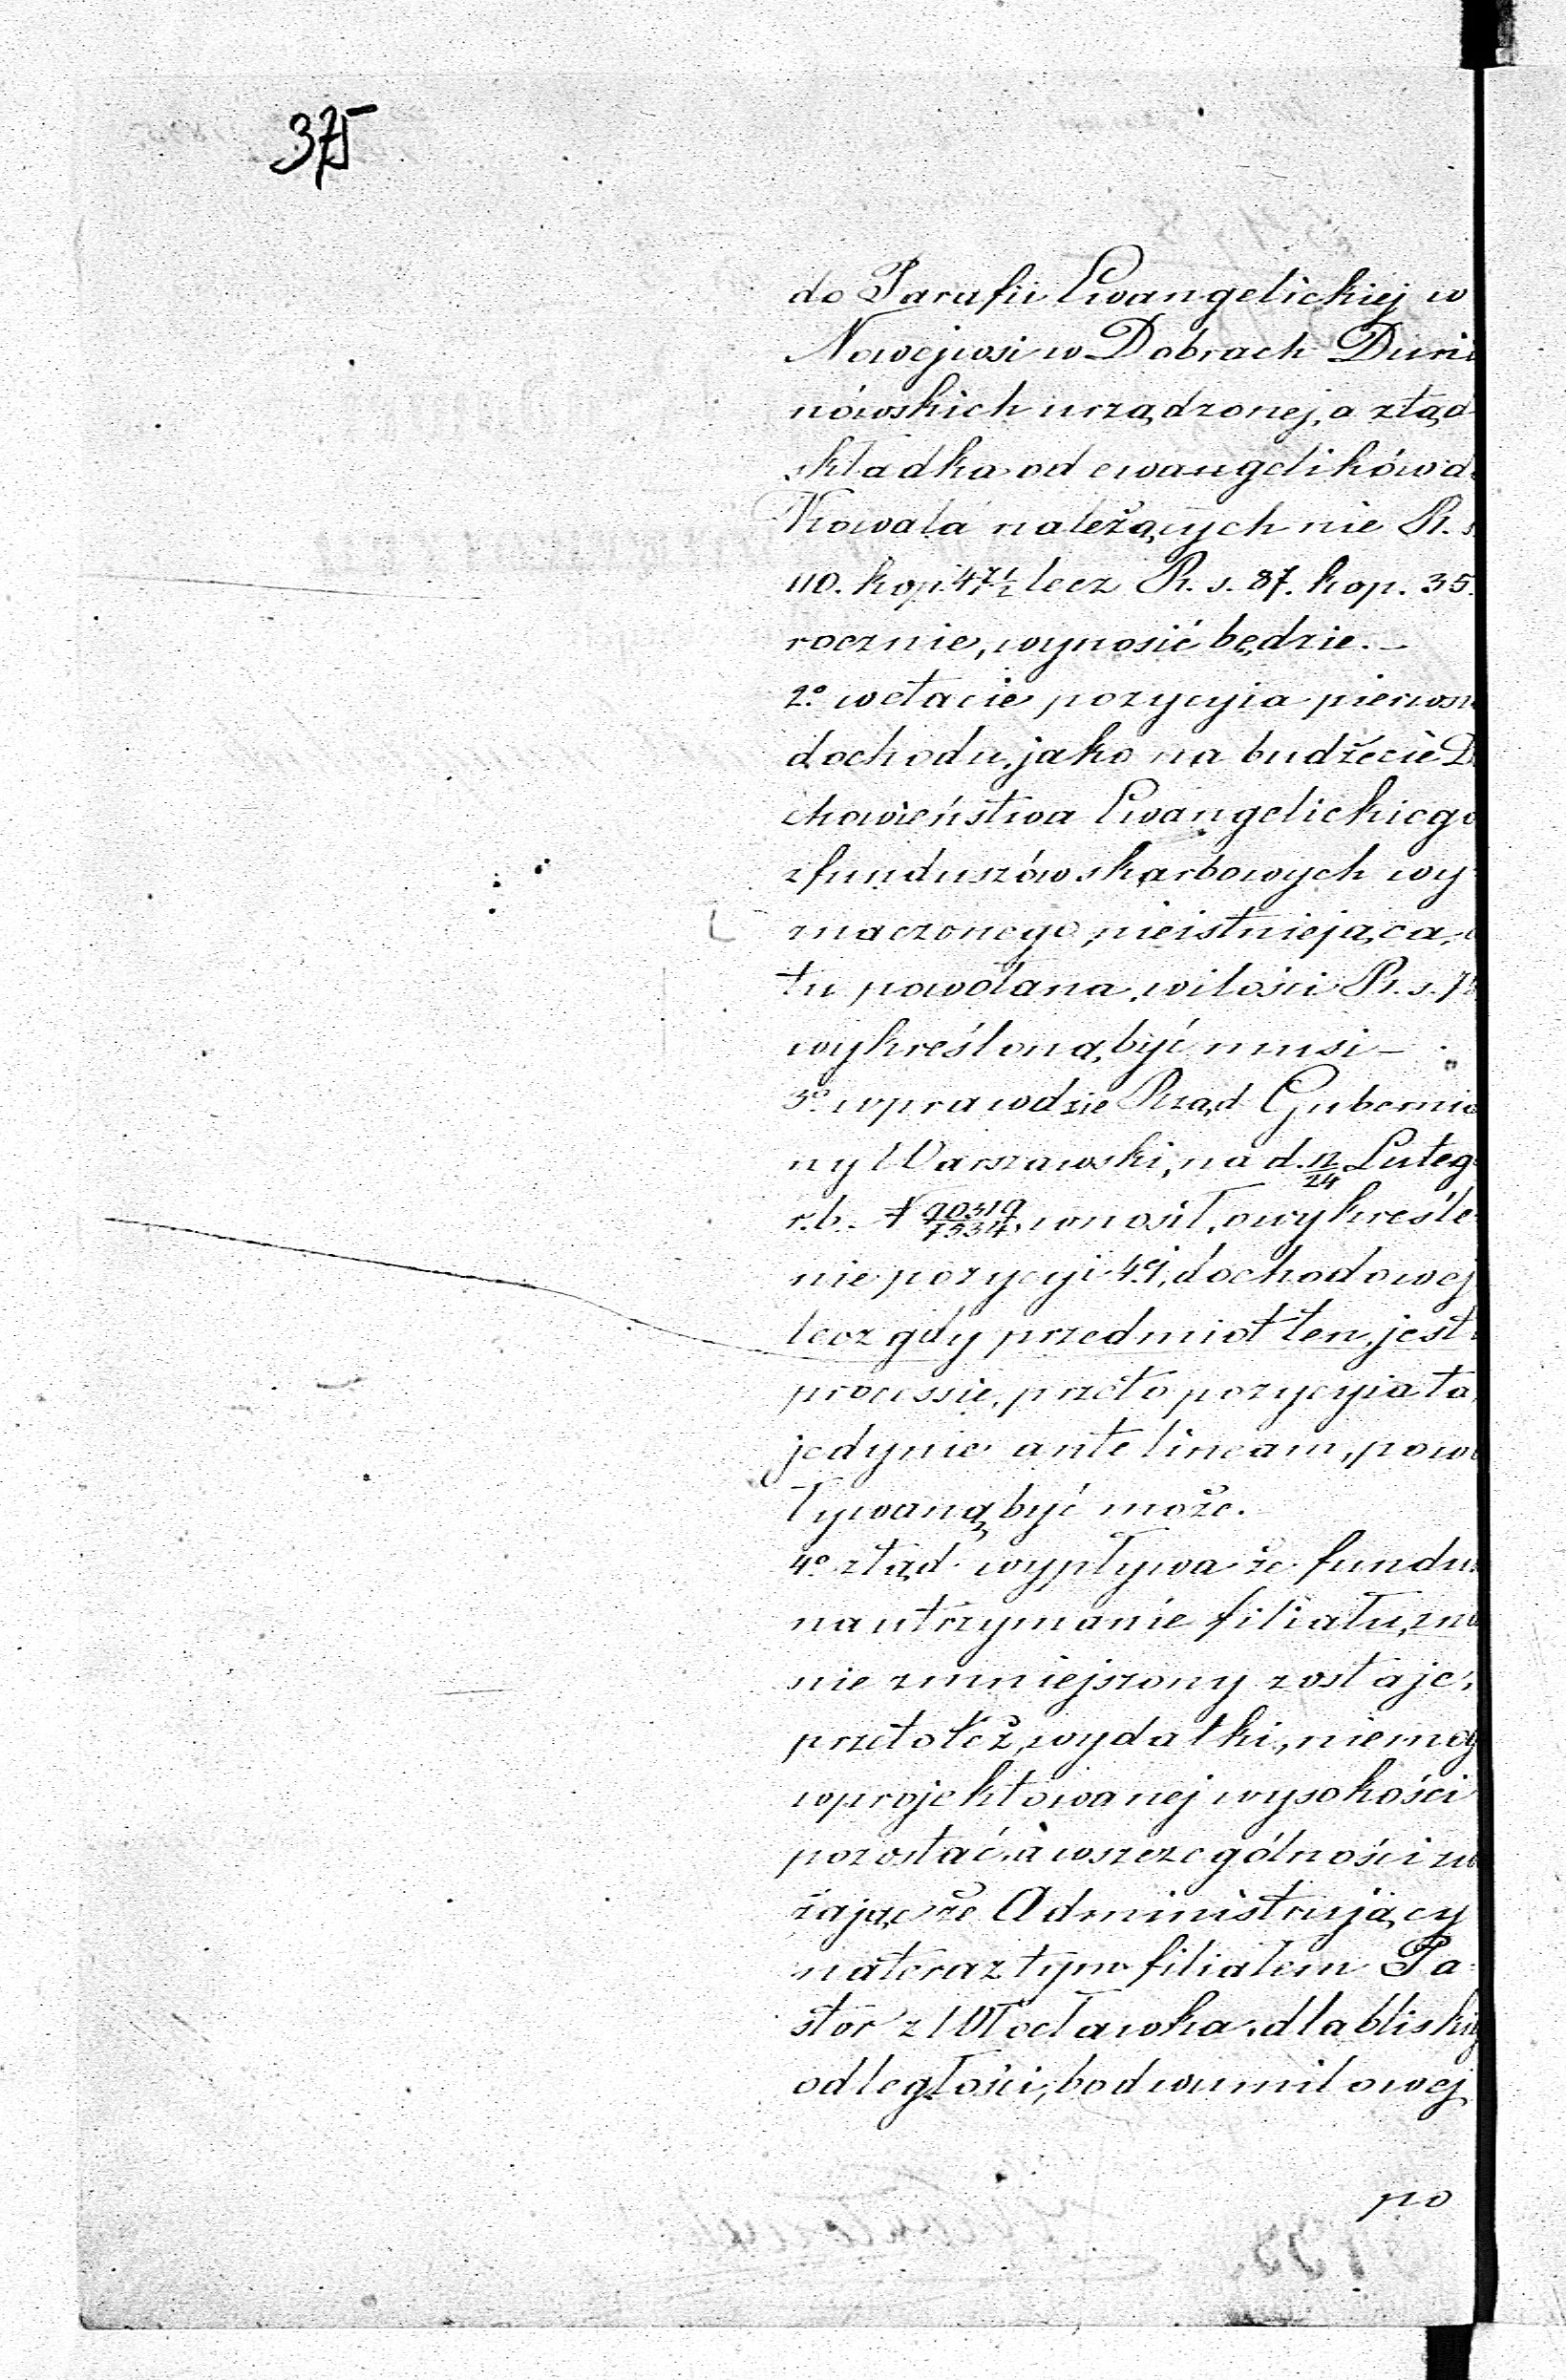 375
do Parafii Ewangelickiej w
Nowejwsi w Dobrach Duni
nówskich urządzonej, a ztąd
składka od ewangelików do
Kowala należących nie R. s.
110. kop. 47½ lecz R. s. 87. kop. 35.
rocznie, wynosić będzie. –
2o wetacie pozycyia pierwsz
dochodu, jako na budżecie Du
chowieństwa Ewangelickiego
z funduszów skarbowych wy
znaczonego, nieistniejąca,
tu powołana, wilości R. s.
wykreśloną, być musi –
3o wprawdzie Rząd Gubernia
ny Warszawski, na d. 12/24 Luteg
r. b. N 90319/7534, wnosił, o wykreśle
nie pozycyi 4ej, dochodowej
lecz gdy przedmiot ten, jest
processie, przeto pozycyia ta,
jedynie ante lineam, powo
ływaną być może.
4o ztąd wypływa że fundu
na utrzymanie filiału, zna
nie zmniejszony zostaje,
przetoteż, wydatki, niemog
wprojektowanej wysokości
pozostać, a wszczególności zw
żając że Administrujący
nateraz tym filiałem Pa
stor z Włocławka, dla bliski
odległości, bo dwumilowej
po